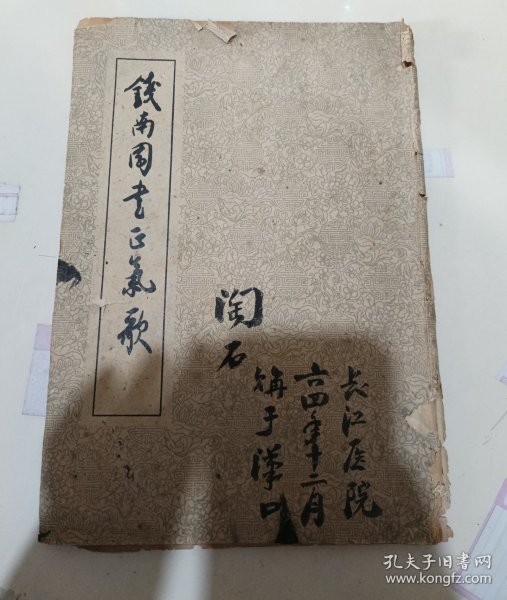 錢南園書正氣歌
长江医院
六四年十二月
购于汉口
陶石
孔夫子旧书网
www.kongfz.com